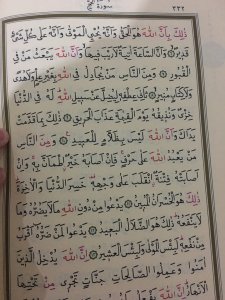 سورة الحج ٣٣٢
ذٰلِكَ بِاَنَّ اللّٰهَ هُوَ الْحَقُّ وَاَنَّهُ يُحْيِ الْمَوْتٰى وَاَنَّهُ عَلٰى كُلِّ شَىْءٍ
قَدِيرٌ وَاَنَّ السَّاعَةَ اٰتِيَةٌ لَا رَيْبَ فِيهَا وَاَنَّ اللّٰهَ يَبْعَثُ مَنْ فِى
الْقُبُورِ وَمِنَ النَّاسِ مَنْ يُجَادِلُ فِى اللّٰهِ بِغَيْرِ عِلْمٍ وَلَا هُدًى
وَلَا كِتَابٍ مُنِيرٍ ثَانِىَ عِطْفِهِ لِيُضِلَّ عَنْ سَبِيلِ اللّٰهِ لَهُ فِى الدُّنْيَا
خِزْىٌ وَنُذِيقُهُ يَوْمَ الْقِيٰمَةِ عَذَابَ الْحَرِيقِ ذٰلِكَ بِمَا قَدَّمَتْ
يَدَاكَ وَاَنَّ اللّٰهَ لَيْسَ بِظَلَّامٍ لِلْعَبِيدِ وَمِنَ النَّاسِ
مَنْ يَعْبُدُ اللّٰهَ عَلٰى حَرْفٍ فَاِنْ اَصَابَهُ خَيْرٌ اطْمَاَنَّ بِهِ وَاِنْ
اَصَابَتْهُ فِتْنَةٌ انْقَلَبَ عَلٰى وَجْهِهِ خَسِرَ الدُّنْيَا وَالْاٰخِرَةَ
ذٰلِكَ هُوَ الْخُسْرَانُ الْمُبِينُ يَدْعُوا مِنْ دُونِ اللّٰهِ مَا لَا يَضُرُّهُ وَمَا
لَا يَنْفَعُهُ ذٰلِكَ هُوَ الضَّلَالُ الْبَعِيدُ يَدْعُوا لَمَنْ ضَرُّهُ اَقْرَبُ
مِنْ نَفْعِهِ لَبِئْسَ الْمَوْلٰى وَلَبِئْسَ الْعَشِيرُ اِنَّ اللّٰهَ يُدْخِلُ الَّذِينَ
اٰمَنُوا وَعَمِلُوا الصَّالِحَاتِ جَنَّاتٍ تَجْرِى مِنْ تَحْتِهَا